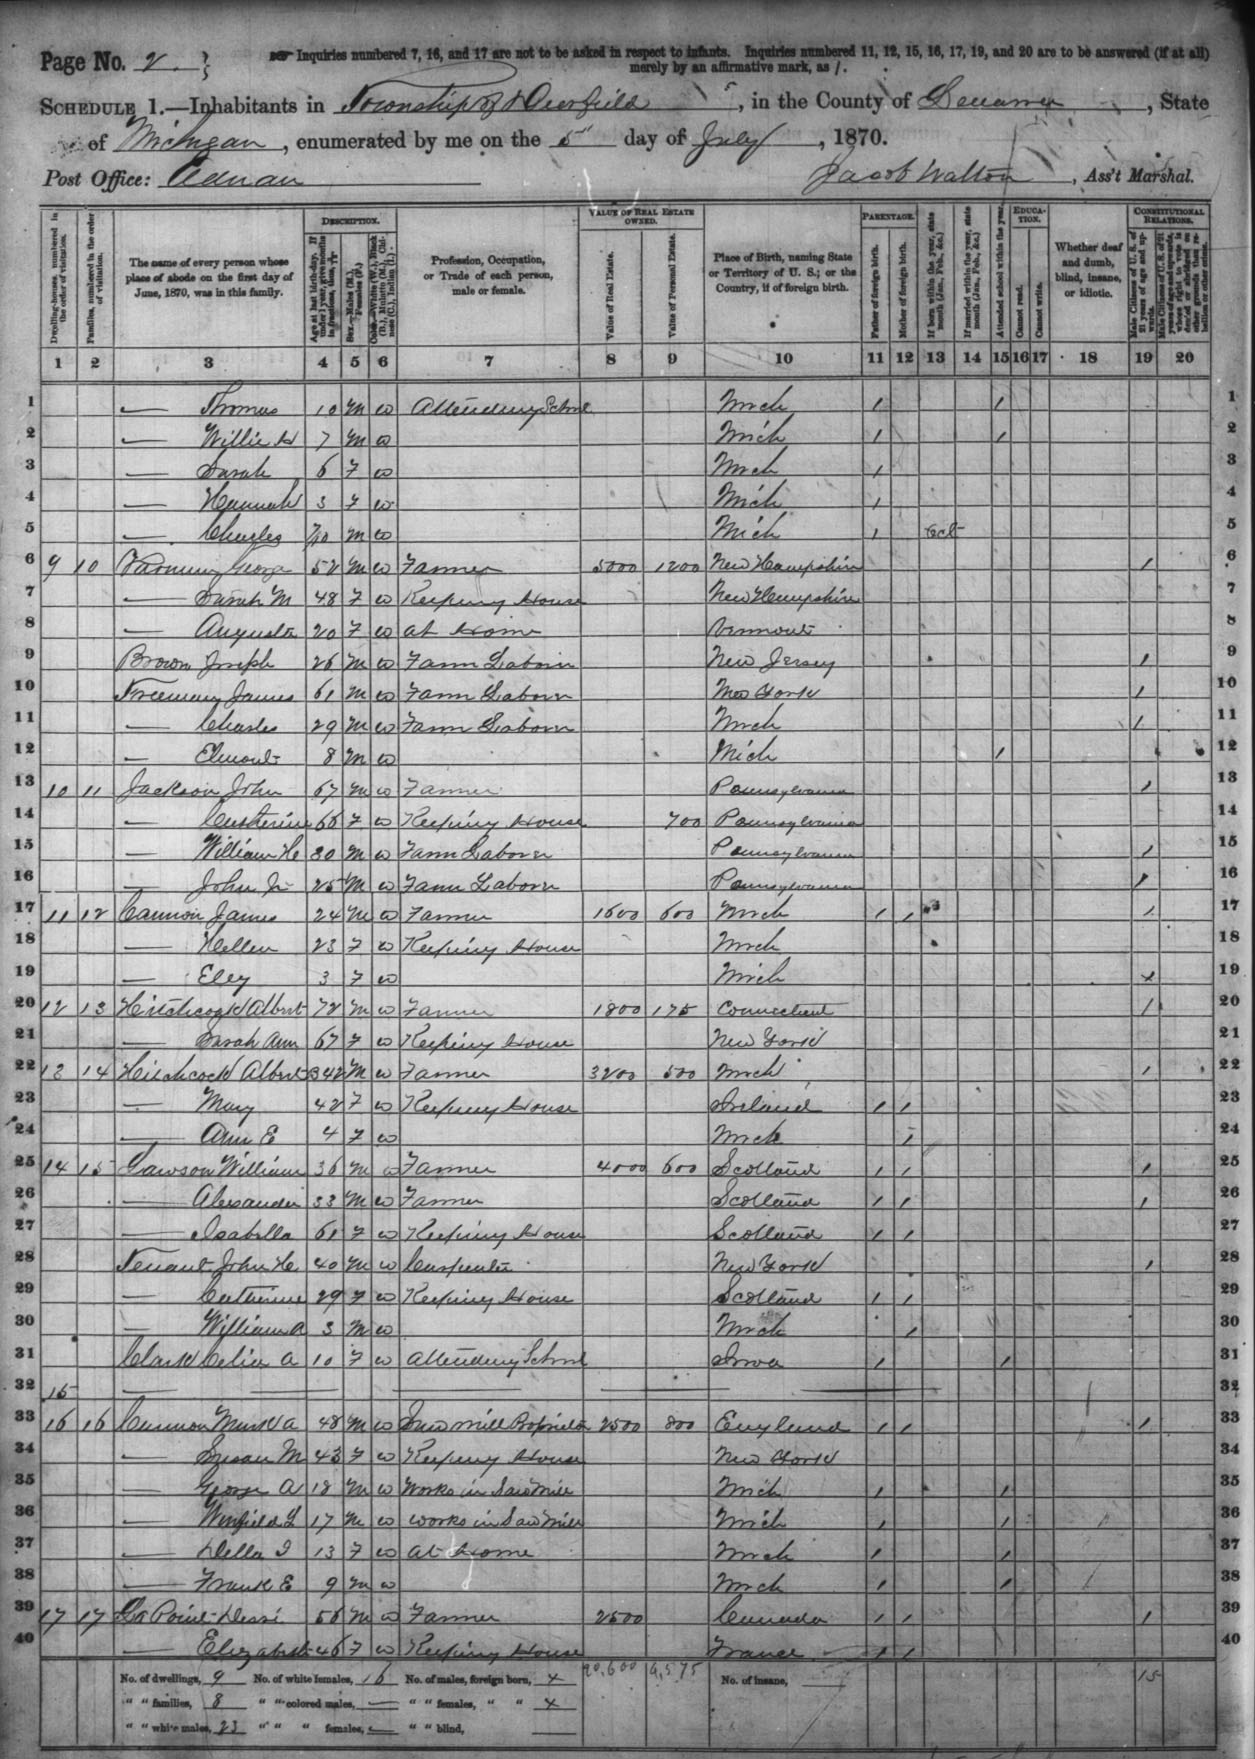 Page No. 2. Inquiries numbered 7, 16, and 17 are not to be asked in respect to infants. Inquiries numbered 11, 12, 15, 16, 17, 19, and 20 are to be answered (if at all)
merely by an affirmative mark, as /.
SCHEDULE 1.—Inhabitants in Township of Deerfield, in the County of Lenawee, State
of Michigan, enumerated by me on the 5th day of July, 1870.
Post Office: Adrian Jacob Walton, Ass't Marshal.
DESCRIPTION. VALUE OF REAL ESTATE OWNED. PARENTAGE. EDUCATION. CONSTITUTIONAL RELATIONS.
Dwelling-houses, numbered in the order of visitation. Families, numbered in the order of visitation. The name of every person whose place of abode on the first day of June, 1870, was in this family. Profession, Occupation, or Trade of each person, male or female. Value of Real Estate. Value of Personal Estate. Place of Birth, naming State or Territory of U. S.; or the Country, if of foreign birth. Father of foreign birth. Mother of foreign birth. Attended school within the year. Cannot read. Cannot write. Whether deaf and dumb, blind, insane, or idiotic.
1 2 3 4 5 6 7 8 9 10 11 12 13 14 15 16 17 18 19 20
1 — Thomas 10 M W Attending School Mich / / 1
2 — Willie H 7 M W Mich / / 2
3 — Sarah 6 F W Mich / 3
4 — Hannah 3 F W Mich / 4
5 — Charles 7/10 M W Mich / Oct 5
6 9 10 George 52 M W Farmer 5000 1200 New Hampshire / 6
7 — Sarah M 48 F W Keeping House New Hampshire 7
8 — Augusta 20 F W at Home Vermont 8
9 Brown Joseph 26 M W Farm Laborer New Jersey / 9
10 Freeman James 61 M W Farm Laborer New York / 10
11 — Charles 29 M W Farm Laborer Mich / 11
12 — Elmont 8 M W Mich / 12
13 10 11 Jackson John 67 M W Farmer Pennsylvania / 13
14 — Catherine 66 F W Keeping House 700 Pennsylvania 14
15 — William H 30 M W Farm Laborer Pennsylvania / 15
16 — John Jr 25 M W Farm Laborer Pennsylvania / 16
17 11 12 Cannon James 24 M W Farmer 1600 600 Mich / / / 17
18 — Hellen 23 F W Keeping House Mich 18
19 — Eley 3 F W Mich x 19
20 12 13 Hitchcock Albert 72 M W Farmer 1800 175 Connecticut / 20
21 — Sarah Ann 67 F W Keeping House New York 21
22 13 14 Hitchcock Albert B 42 M W Farmer 3200 500 Mich / 22
23 — Mary 42 F W Keeping House Ireland / / 23
24 — Ann E 4 F W Mich / 24
25 14 15 Lawson William 36 M W Farmer 4000 600 Scotland / / / 25
26 — Alexander 33 M W Farmer Scotland / / / 26
27 — Isabella 61 F W Keeping House Scotland / / 27
28 Tenant John H 40 M W Carpenter New York / 28
29 — Catherine 29 F W Keeping House Scotland / / 29
30 — William A 3 M W Mich / 30
31 Clark Celia A 10 F W Attending School Iowa / / 31
32 15 — — — — — 32
33 16 16 Cannon Mark A 48 M W Saw Mill Proprietor 2500 800 England / / / 33
34 — Susan M 43 F W Keeping House New York 34
35 — George A 18 M W Works in Saw Mill Mich / / 35
36 — Winfield L 17 M W Works in Saw Mill Mich / / 36
37 — Della I 13 F W At Home Mich / / 37
38 — Frank E 9 M W Mich / / 38
39 17 17 La Point 56 M W Farmer 2500 Canada / / / 39
40 — Elizabeth 46 F W Keeping House France / / 40
No. of dwellings, 9 No. of white females, 16 No. of males, foreign born, 4 20,600 4,575 No. of insane, 15
" " families, 8 " " colored males, — " " females, " " 4
" " white males, 23 " " " females, — " " blind,